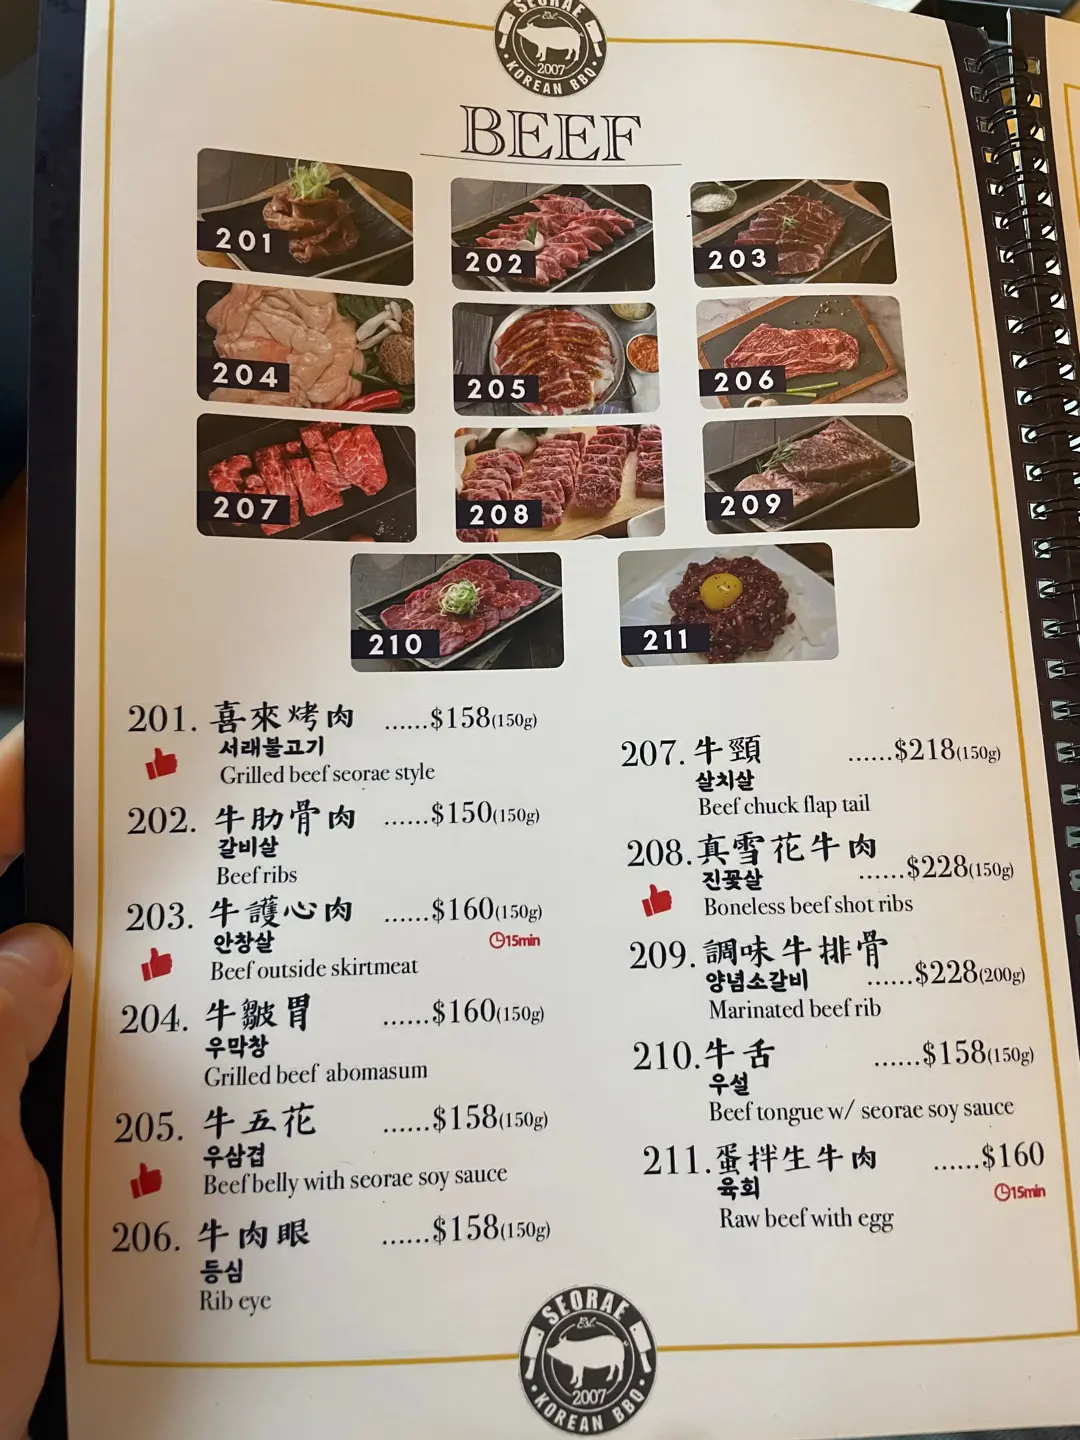 SEORAE
Est.
2007
KOREAN BBQ
BEEF
201
202
203
204
205
206
207
208
209
210
211
201. 喜來烤肉 ......$158(150g)
서래불고기
Grilled beef seorae style
202. 牛肋骨肉 ......$150(150g)
갈비살
Beef ribs
203. 牛護心肉 ......$160(150g)
안창살 15min
Beef outside skirtmeat
204. 牛皺胃 ......$160(150g)
우막창
Grilled beef abomasum
205. 牛五花 ......$158(150g)
우삼겹
Beef belly with seorae soy sauce
206. 牛肉眼 ......$158(150g)
등심
Rib eye
207. 牛頸 ......$218(150g)
살치살
Beef chuck flap tail
208. 真雪花牛肉
진꽃살 ......$228(150g)
Boneless beef shot ribs
209. 調味牛排骨
양념소갈비 ......$228(200g)
Marinated beef rib
210. 牛舌 ......$158(150g)
우설
Beef tongue w/ seorae soy sauce
211. 蛋拌生牛肉 ......$160
육회 15min
Raw beef with egg
SEORAE
Est.
2007
KOREAN BBQ